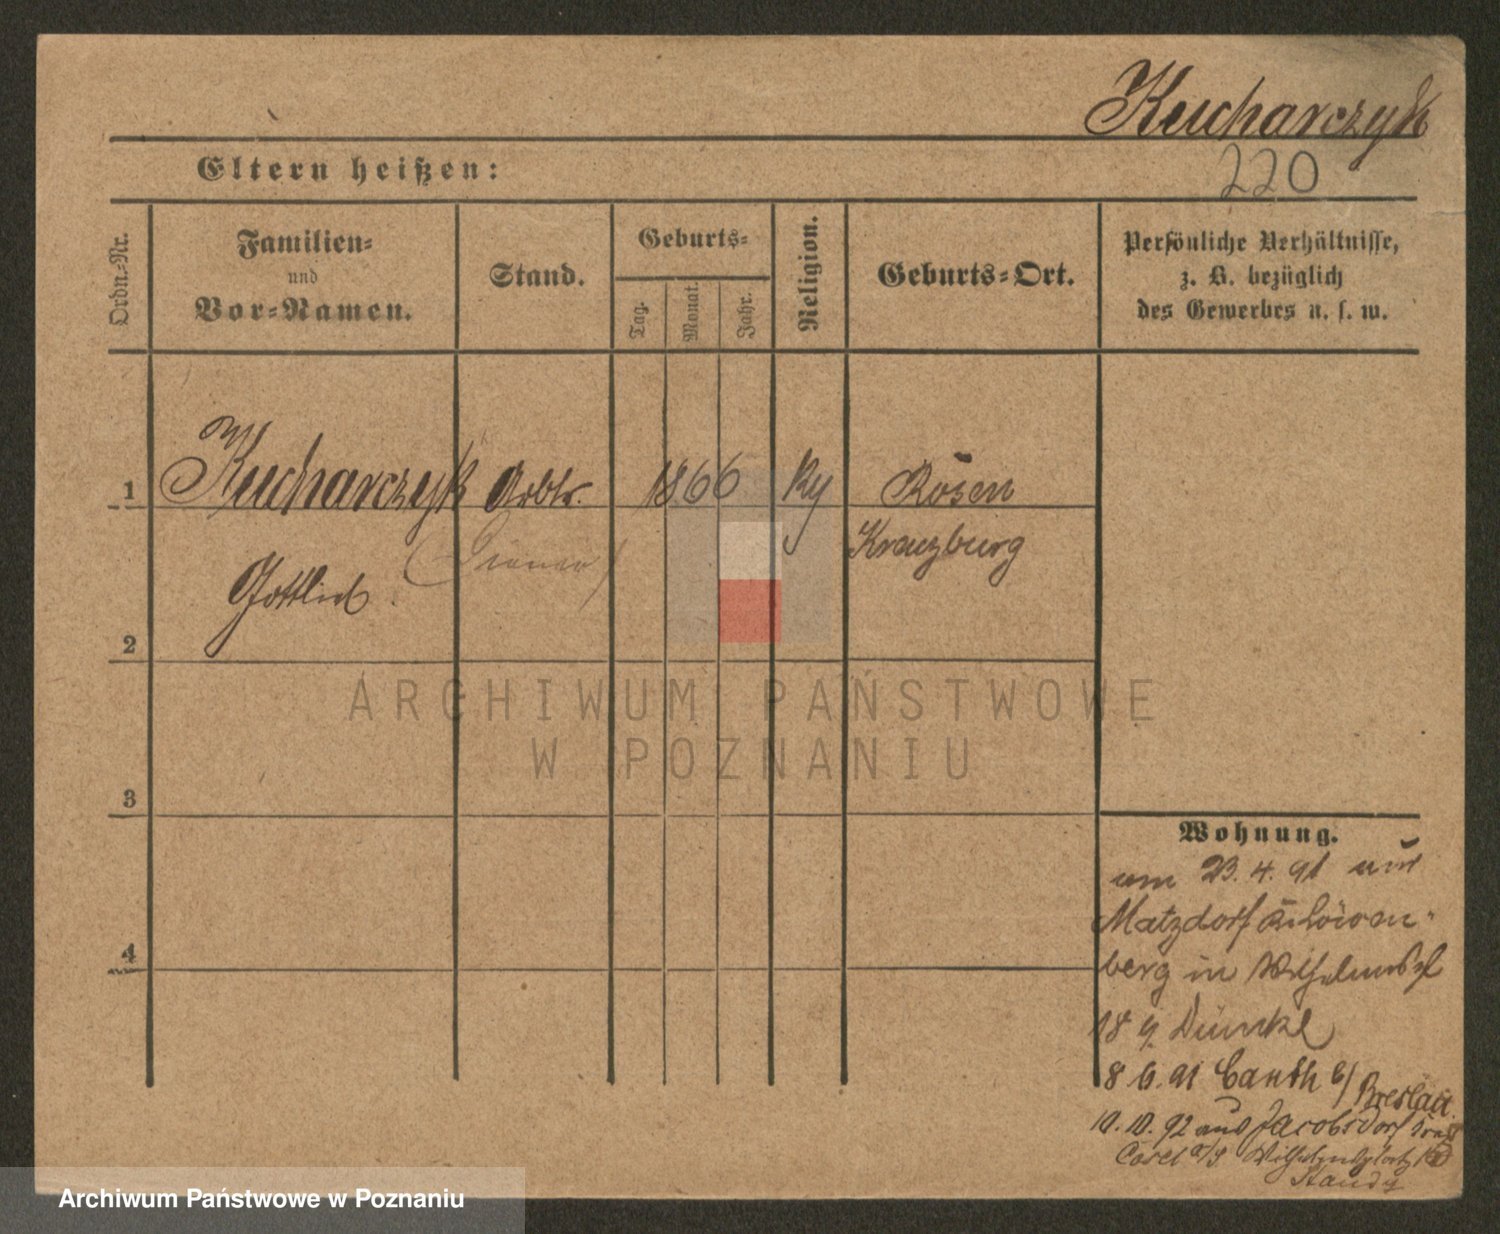 Kucharczyk
Eltern heißen:
220
Ordn.-Nr.
Familien-
und
Vor-Namen.
Stand.
Geburts-
Tag.
Monat.
Jahr.
Religion.
Geburts-Ort.
Persönliche Verhältnisse,
z. B. bezüglich
des Gewerbes u. s. w.
1
Kucharczyk Arbtr. 1866 Rosen
(Diener) Kreuzburg
Gottlieb
2
ARCHIWUM PAŃSTWOWE
W POZNANIU
3
Wohnung.
am 23.4.91 aus
Matzdorf Löwen-
berg in Wilhelmspl
18 g. Dünke
8.6.91 Canth b/ Breslau.
10.10.92 aus Jacobsdorf
Cosel O/S Wilhelmsplatz
4
Archiwum Państwowe w Poznaniu